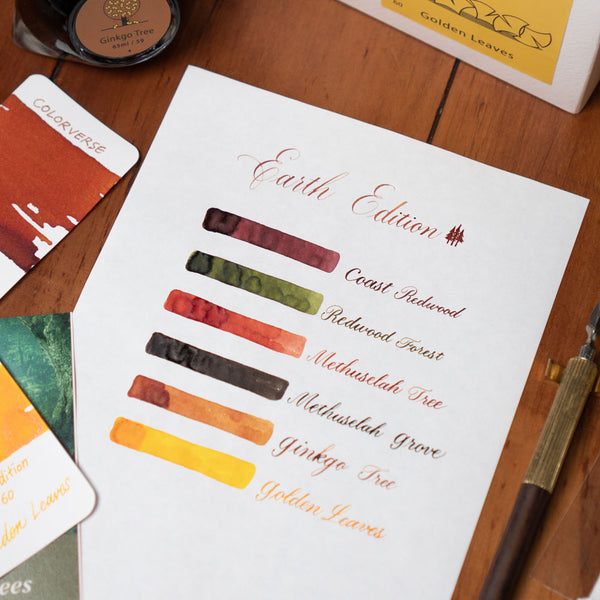 Ginkgo Tree
65ml / 59
60
Golden Leaves
COLORVERSE
Earth Edition
Coast Redwood
Redwood Forest
Methuselah Tree
Methuselah grove
ginkgo Tree
Golden Leaves
dition
60
den Leaves
ees